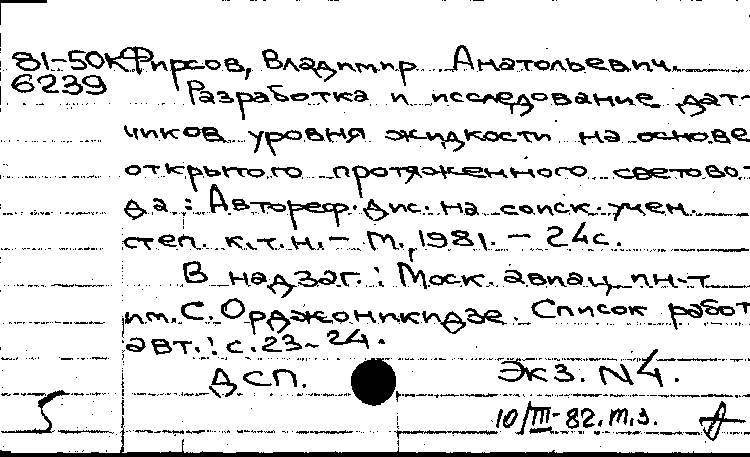 81-50К Фирсов, Владимир Анатольевич.
6239 Разработка и исследование дат-
чиков уровня жидкости на основе
открытого протяженного светово-
да: Автореф. дис. на соиск. учен.
степ. к.т.н. - М., 1981. - 24с.
В надзаг.: Моск. авиац. ин-т
им. С. Орджоникидзе. Список работ
авт.: с. 23-24.
ДСП. Экз. N4.
5 10/III-82. т.з.